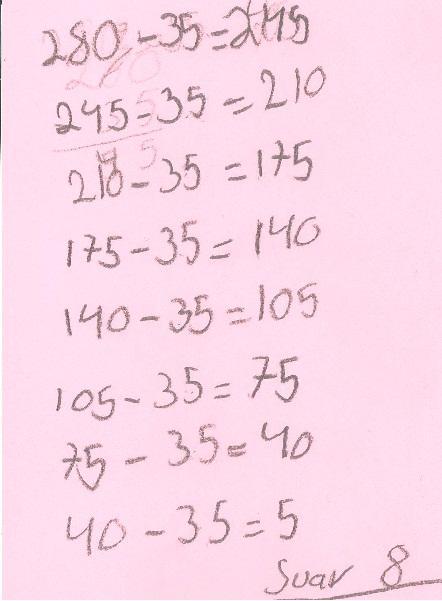 280-35=245
245-35=210
210-35=175
175-35=140
140-35=105
105-35=75
75-35=40
40-35=5
Svar 8